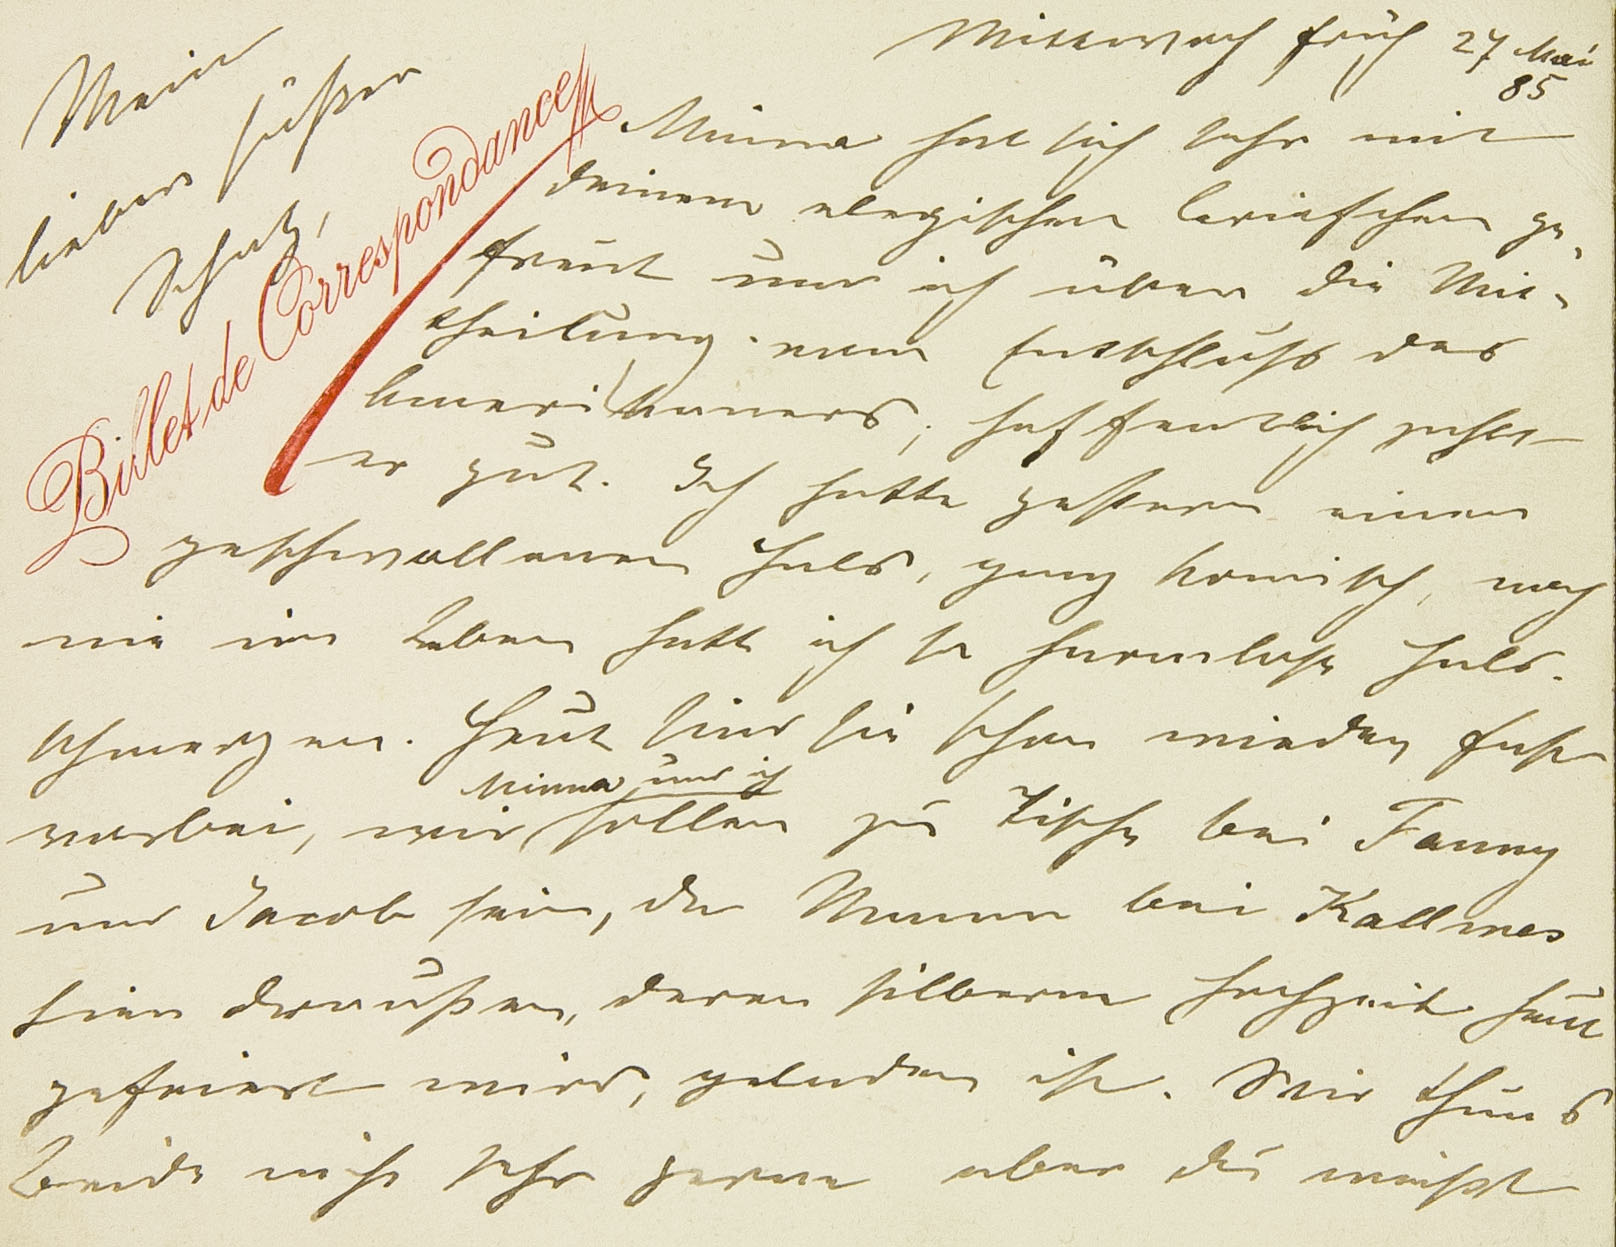 Mittwoch früh 27 Mai
85
Mein
lieber süßer
Schatz,
Billet de Correspondance
Minna hat sich sehr mit
deinem elegischen Briefchen ge-
freut und ich über die Mit-
theilung vom Entschluß des
Amerikaners, hoffentlich zahlt
er gut. Ich hatte gestern einen
geschwollenen Hals, ganz komisch, noch
nie im Leben hatt ich so harmlose Hals-
schmerzen. Heut sind sie schon wieder fast
Minna und ich
vorbei, wir sollen zu Tische bei Fanny
und Jacob sein, da Mama bei Kallmes
hier draußen, deren silberne Hochzeit heut
gefeiert wird, geladen ist. Wir thuns
beide nicht sehr gerne aber du weißt